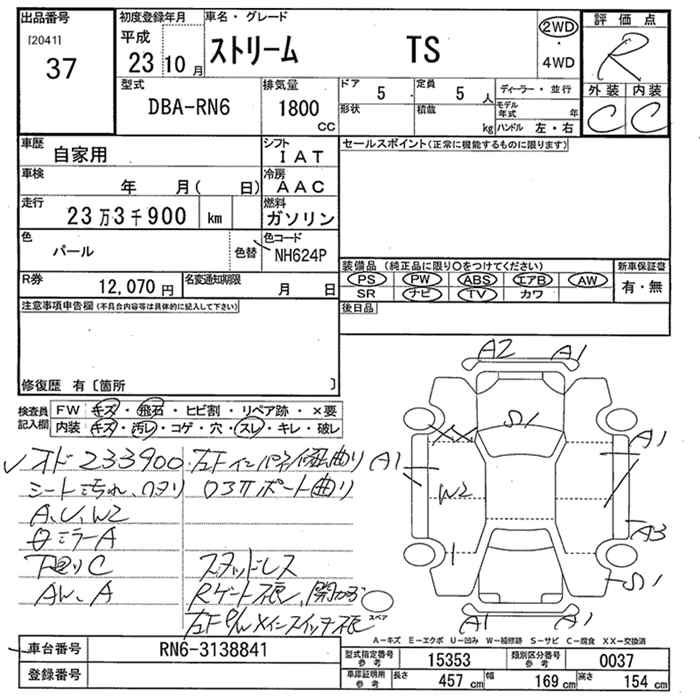 出品番号 初度登録年月 車名・グレード 2WD 評価点
[2041] 平成 ストリーム TS R
37 23 10月 4WD
型式 排気量 ドア 5 定員 5人 ディーラー・並行 外装 内装
DBA-RN6 1800 CC 形状 積載 kg モデル年式 年 C C
ハンドル 左・右
車歴 シフト セールスポイント(正常に機能するものに限ります)
自家用 IAT
車検 冷房
年 月( 日) AAC
走行 燃料
23万3千900 km ガソリン
色 色替 色コード
パール NH624P
R券 名変通知期限 装備品(純正品に限り○をつけてください) 新車保証書
12,070円 月 日 PS PW ABS エアB AW 有・無
SR ナビ TV カワ
注意事項申告欄(不具合内容等は具体的に記入して下さい) 後日品
修復歴 有〔箇所 〕
検査員記入欄 FW キズ・飛石・ヒビ割・リペア跡・×要
内装 キズ・汚レ・コゲ・穴・スレ・キレ・破レ
オド233900 左Fインパネ修混曲り
シート汚れ、ヘタリ ロアサポート曲り
A、U、W2
ミラーA
下廻りC スタッドレス
AW、A Rゲート不良、開かず
左F P/Wメインスイッチ不良
A2 A1
S1
A1 A1
W2
A3
S1
A1 A1
スペア
A-キズ E-エクボ U-凹み W-補修跡 S-サビ C-腐食 XX-交換済
車台番号 RN6-3138841 型式指定番号 参考 15353 類別区分番号 参考 0037
登録番号 車庫証明用 参考 長さ 457 cm 幅 169 cm 高さ 154 cm